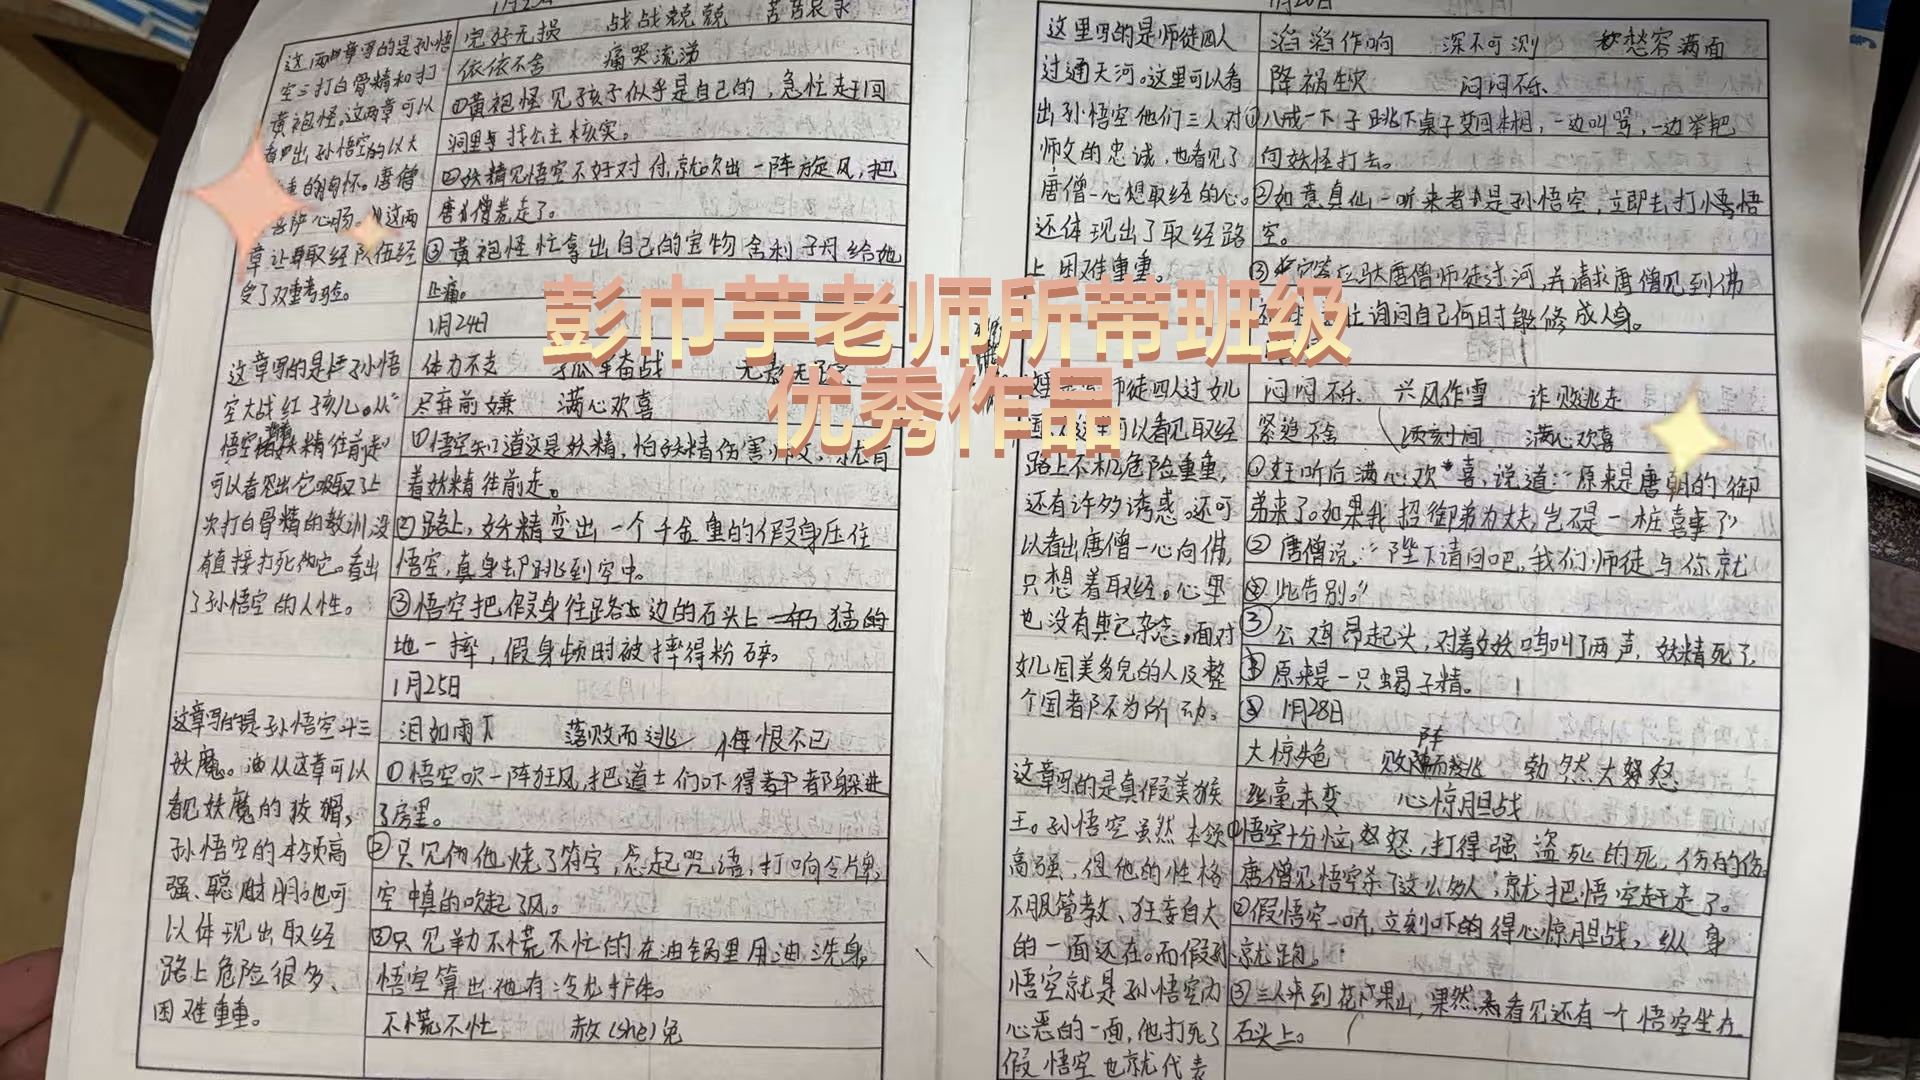 这两章写的是孙悟
空三打白骨精和打
黄袍怪。这两章可以
看出孙悟空的以大
的胸怀。唐僧
菩萨心肠。这两
章让取经队伍经
受了双重考验。
完好无损 战战兢兢
依依不舍 痛哭流涕
①黄袍怪见孩子似乎是自己的，急忙赶回
洞里与找公主核实。
②妖精见悟空不好对付，就吹出一阵旋风，把
唐僧卷走了。
③黄袍怪忙拿出自己的宝物舍利子丹给她
止痛。
1月24日
这章写的是孙悟
空大战红孩儿。从“
悟空背妖精往前走”
可以看出它吸取了上
次打白骨精的教训没
有直接打死它。看出
了孙悟空的人性。
体力不支 奋战
尽弃前嫌 满心欢喜
①悟空知道这是妖精，怕妖精伤害师父，就背
着妖精往前走。
②路上，妖精变出一个千金重的假身压住
悟空，真身却跳到空中。
③悟空把假身往路边的石头上一扔猛的
地一摔，假身顿时被摔得粉碎。
1月25日
这章写的是孙悟空斗三
妖魔。从这章可以
看见妖魔的狡猾，
孙悟空的本领高
强、聪明也可
以体现出取经
路上危险很多、
困难重重。
泪如雨下 落败而逃 悔恨不已
①悟空吹一阵狂风，把道士们吓得都躲进
了房里。
②只见他烧了符字，念起咒语，打响令牌，
空中真的吹起了风。
③只见羊力不慌不忙的在油锅里用油洗身。
悟空算出他有冷龙护体。
不慌不忙 赦(she)免
这里写的是师徒四人
过通天河。这里可以看
出孙悟空他们三人对
师父的忠诚，也看见了
唐僧一心想取经的心。
还体现出了取经路
上困难重重。
滔滔作响 深不可测 愁容满面
降祸生灾 闷闷不乐
①八戒一下子跳下桌子变回本相，一边叫骂，一边举耙
向妖怪打去。
②如意真仙一听来者是孙悟空，立即去打悟
空。
③老鼋在马大唐僧师徒过河，并请求唐僧见到佛
询问自己何日才能修成人身。
师徒四人过女儿
这可以看见取经
路上不机危险重重，
还有许多诱惑。还可
以看出唐僧一心向佛，
只想着取经。心里
也没有其它杂念。面对
女儿国美多见的人及整
个国者陌不为所动。
闷闷不乐 兴风作雪 诈败逃走
紧追不舍 顷刻间 满心欢喜
①好听后满心欢喜，说道：“原来是唐朝的御
弟来了。如果我招御弟为丈夫，岂不是一桩喜事了”
②唐僧说：“陛下请回吧，我们师徒与你就
此告别。”
③公鸡昂起头，对着女妖鸣叫了两声，妖精死了
原来是一只蝎子精。
1月28日
这章写的是真假美猴
王。孙悟空虽然本领
高强，但他的性格
不服管教、狂妄自大
的一面还在。而假孙
悟空就是孙悟空内
心恶的一面，他打死了
假悟空也就代表
大惊失色 败阵而逃 勃然大怒
丝毫未变 心惊胆战
①悟空十分恼怒，打得强盗死的死，伤的伤。
唐僧见悟空杀了这么多人，就把悟空赶走了。
②假悟空一听，立刻吓的得心惊胆战，纵身
就跑。
③三人来到花果山，果然看见还有一个悟空坐在
石头上。
彭巾芋老师所带班级
优秀作品